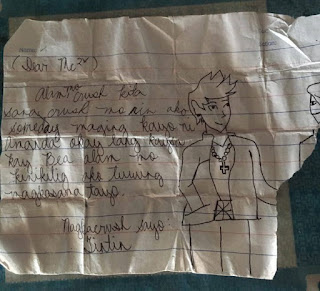 (Dear The
Alam mo crush kita
sana crush mo rin ako
someday maging kayo ni
Amanda okay lang kahit
kay Bea alam mo
kinikilig ako tuwing
magkasama tayo.
Nagkacrush sayo:
Tintin